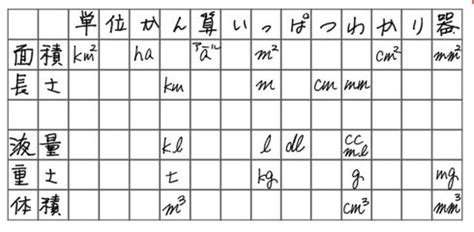 単位かん算いっぱつわかり器
面積 km² ha アール a m² cm² mm²
長士 km m cm mm
液量 kl l dl cc ml
重士 t kg g mg
体積 m³ cm³ mm³